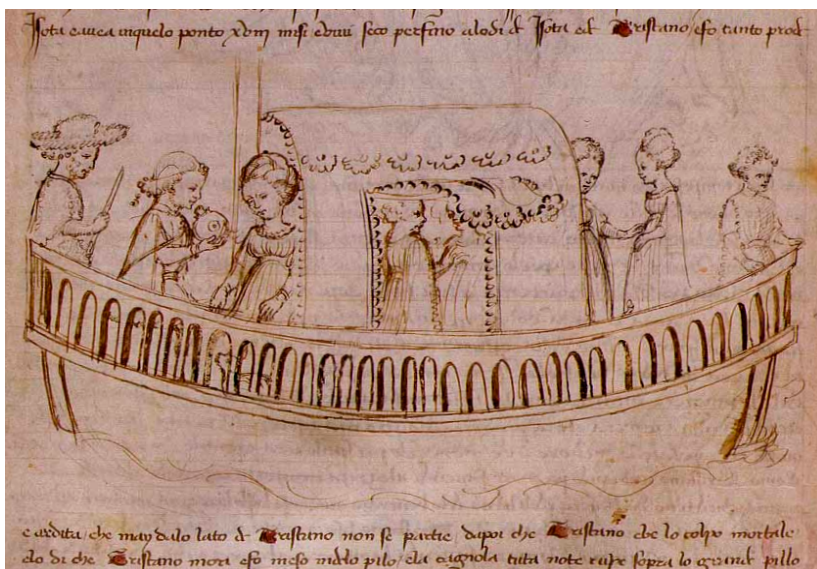 Isota e avea in quelo ponto xviij misi e vivi seco per fino a lo di de Isota e de Tristano, e fo tanto prod
e ardita, che may da lo lato de Tristano non se partie, dapoi che Tristano ebe lo colpo mortale
e lo di che Tristano mori e fo meso in delo pilo, e la cagnola tuta note sopra lo grande pillo